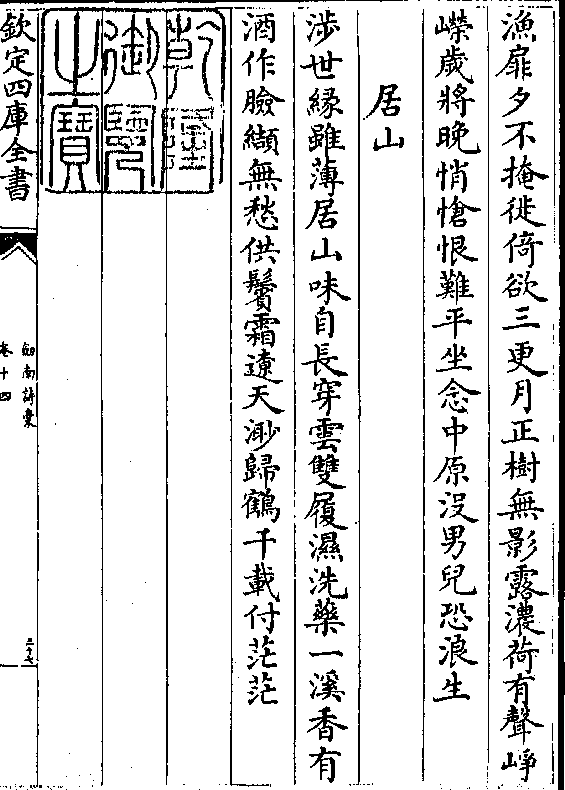 漁扉夕不掩徙倚欲三更月正樹無影露濃荷有聲崢
嶸歲將晚悄愴恨難平坐念中原没男兒恐浪生
居山
涉世縁雖薄居山味自長穿雲雙履濕洗藥一溪香有
酒作臉纈無愁供鬢霜遼天渺歸鶴千載付茫茫
乾隆御覽之寶
欽定四庫全書
劍南詩稾
卷十四
二十七